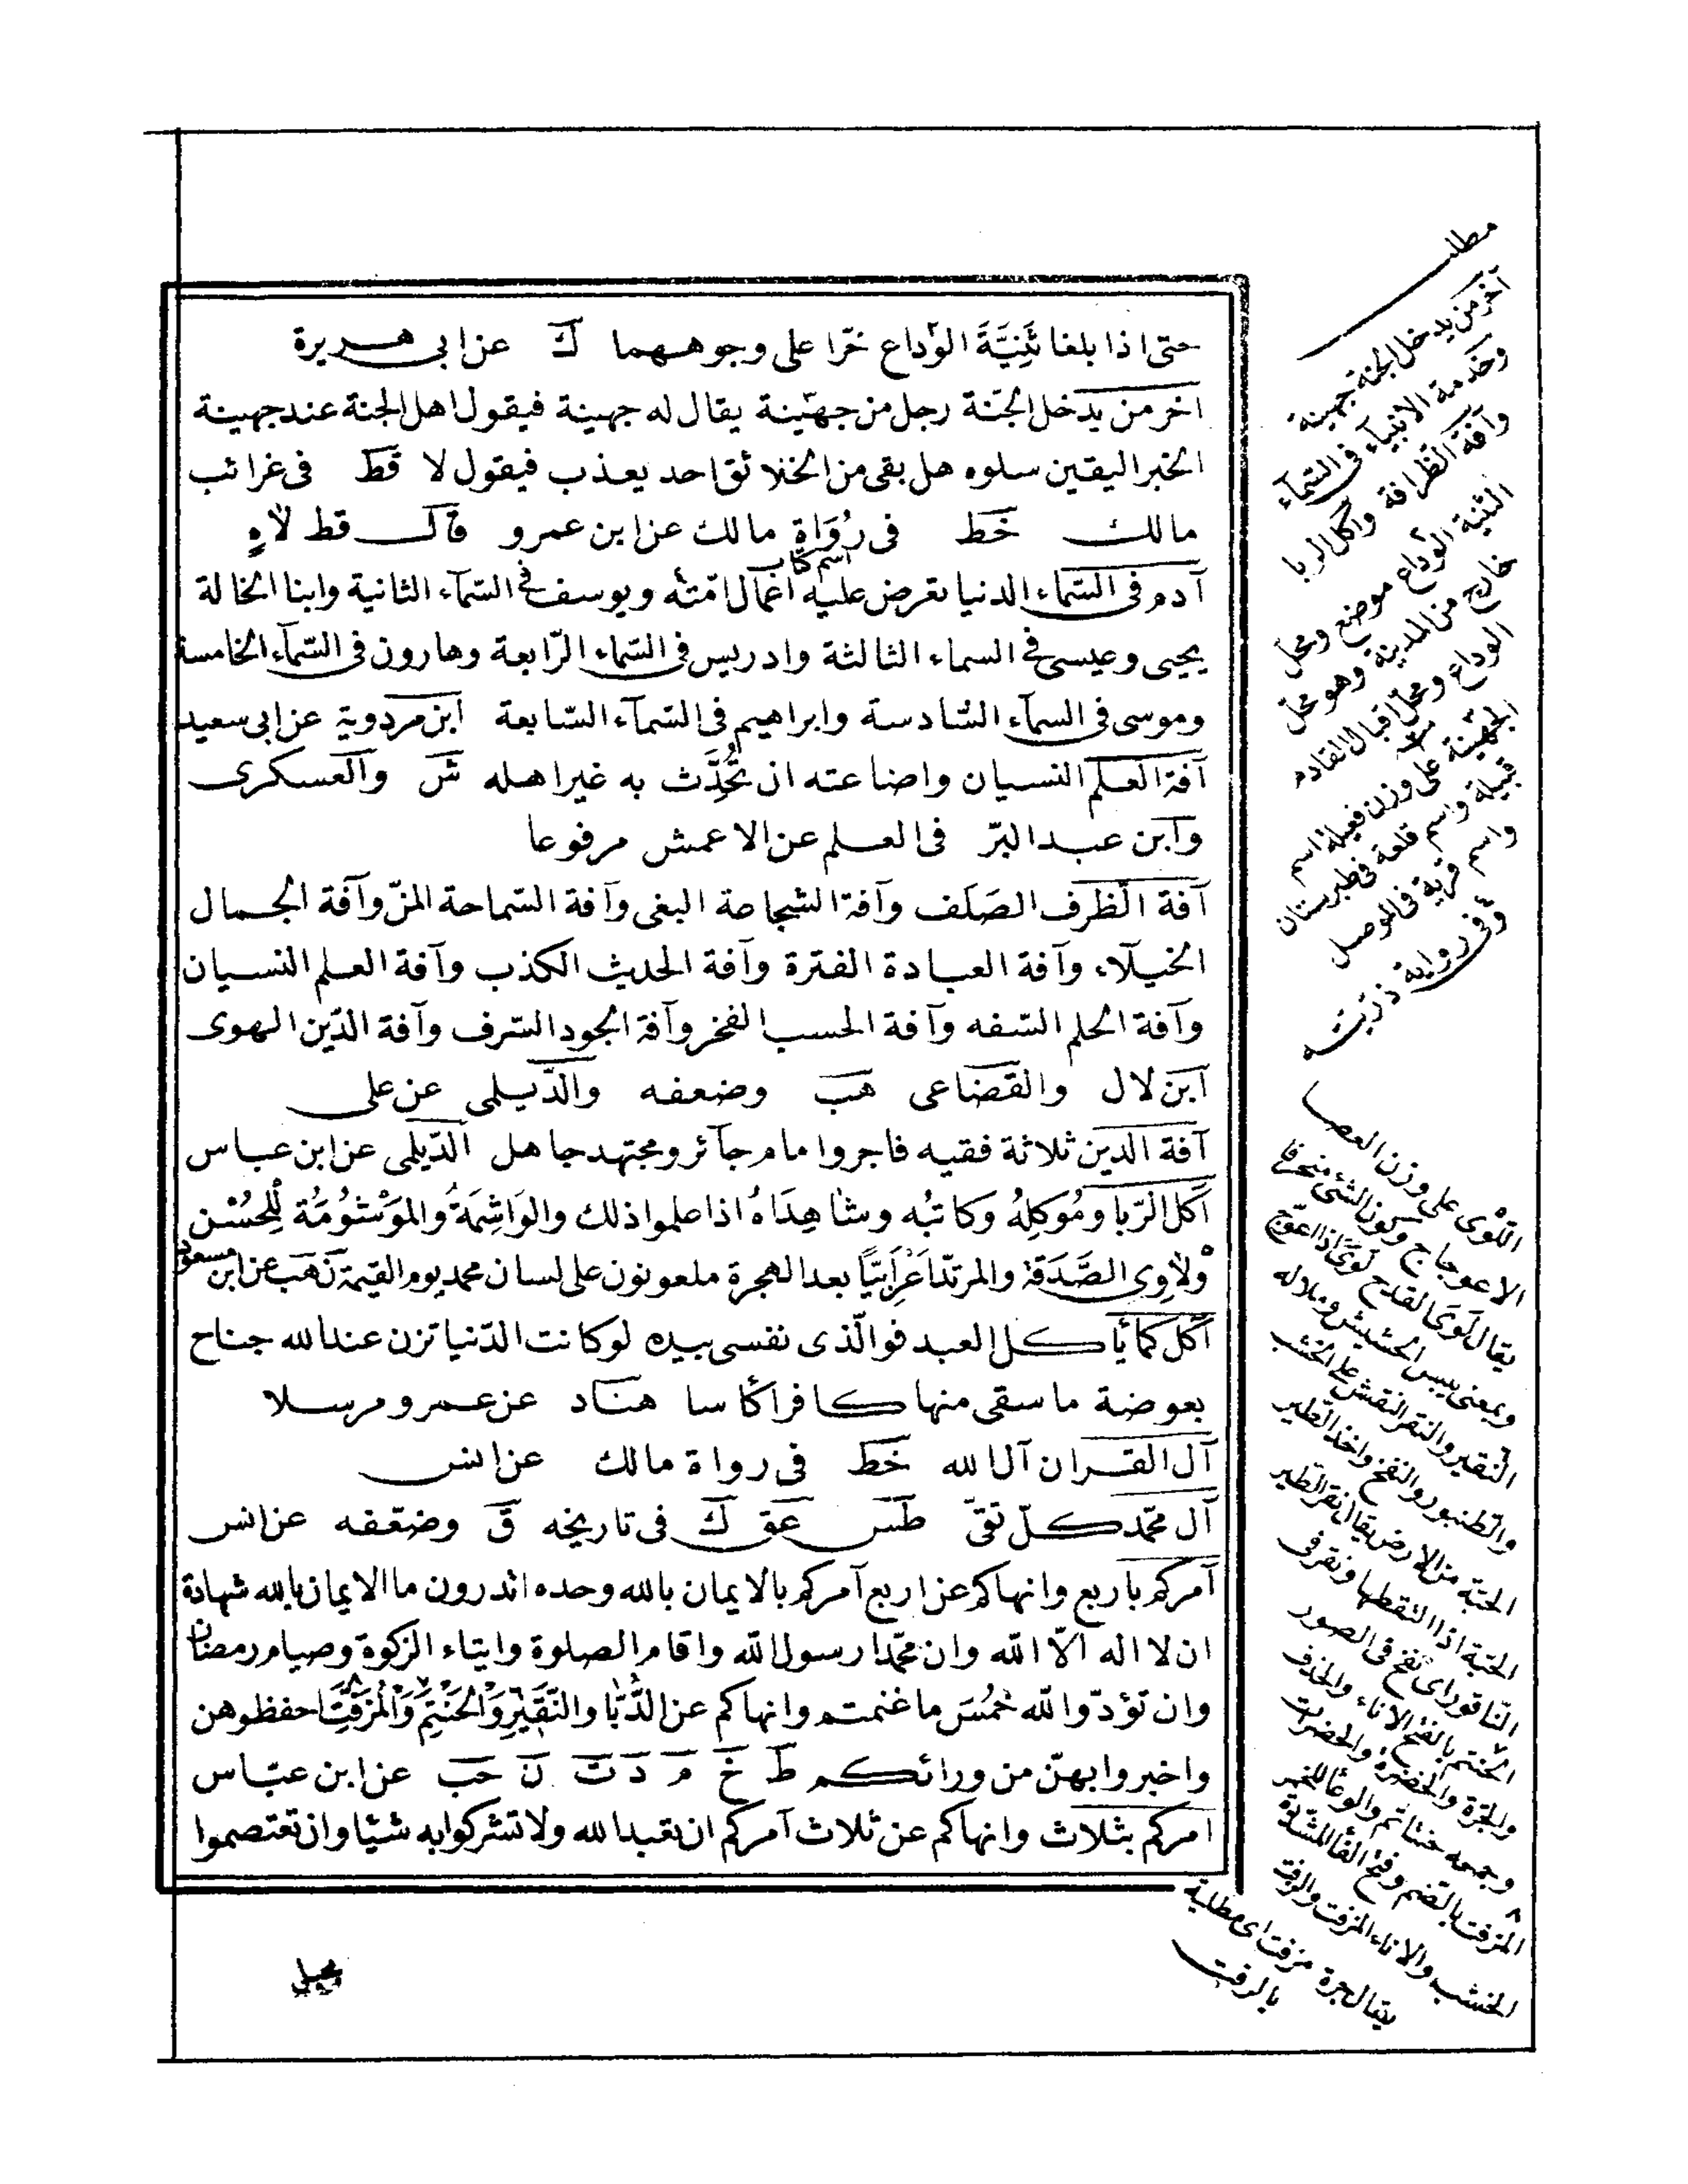 حتى اذا بلغا ثَنِيَّةَ الوَداع خرّا على وجوههما ك عن ابى هريرة
آخر من يدخل الجنّة رجل من جهينة يقال له جهينة فيقول اهل الجنة عند جهينة
الخبر اليقين سلوه هل بقى من الخلائق احد يعذب فيقول لا قط فى غرائب
مالك خط فى رُوَاة مالك عن ابن عمرو قال قط لاهٍ
اسم كتاب
آدم فى السّماء الدنيا تعرض عليه اعمال امّته ويوسف فى السّمآء الثانية وابنا الخالة
يحيى وعيسى فى السماء الثالثة وادريس فى السّماء الرّابعة وهارون فى السّمآء الخامسة
وموسى فى السمآء السّادسة وابراهيم فى السّمآء السّابعة ابن مردوية عن ابى سعيد
آفة العلم النسيان واضاعته ان تُحَدِّث به غير اهله ش والعسكرى
وابن عبد البرّ فى العلم عن الاعمش مرفوعا
آفة الظرف الصَلَف وآفة الشجاعة البغى وآفة السّماحة المنّ وآفة الجمال
الخيلآء وآفة العبادة الفترة وآفة الحديث الكذب وآفة العلم النسيان
وآفة الحلم السّفه وآفة الحسب الفخر وآفة الجود السّرف وآفة الدّين الهوى
ابن لال والقضاعى هب وضعفه والدّيلمى عن على
آفة الدين ثلاثة فقيه فاجر وامام جآئر ومجتهد جاهل الدّيلمى عن ابن عباس
آكل الرّبا ومُوكِلُهُ وكاتبُه وشاهِدَاهُ اذا علموا ذلك والوَاشِمَةُ والمَوْشُومَةُ لِلْحُسْن
ولَاوِى الصَّدَقَة والمرتدّ اَعْرَابِيًّا بعد الهجرة ملعونون على لسان محمد يوم القيمة ن هب عن ابن مسعود
آكل كما يأكل العبد فوالّذى نفسى بيده لو كانت الدّنيا تزن عند الله جناح
بعوضة ما سقى منها كافرا كاسا هناد عن عمرو مرسلا
آل القران آل الله خط فى رواة مالك عن انس
آل محمّد كلّ تقىّ طس عق ك فى تاريخه ق وضعّفه عن انس
آمركم باربع وانهاكم عن اربع آمركم بالايمان بالله وحده اتدرون ما الايمان بالله شهادة
ان لا اله الاّ الله وان محمّدا رسول الله واقام الصلوة وايتاء الزكوة وصيام رمضان
وان تؤدّوا لله خُمُسَ ما غنمتم وانهاكم عن الدُّبَّا والنَّقِيْرِ وَالْحَنْتَمِ وَالْمُزَفَّتِ احفظوهن
واخبروا بهنّ من ورائكم ط خ م د ت ن حب عن ابن عبّاس
آمركم بثلاث وانهاكم عن ثلاث آمركم ان تعبدالله ولا تشركوا به شيئا وان تعتصموا
مطلب
آخر من يدخل الجنة جهينة
وخدمة الانبيآء فى السّمآء
وآفة الظرافة وآكل الربا
الثنية الوداع موضع ومحلّ
خارج من المدينة وهو محلّ
الوداع ومحلّ اقبال القادم
الجهينة على وزن فعيلة اسم
قبيلة واسم قلعة فى طبرستان
واسم قرية فى الموصل
وفى رواية
اللَّوْى على وزن العصا
الاعوجاج وكون الشئ منحرفا
يقال لَوِىَ القدح لَوًى اذا اعوج
وبمعنى يبس الحشيش وملاله
النقير والنقر النقش على الخشب
والطنبور والنفخ واخذ الطير
الحبّة من الارض يقال نقر الطير
الحبّة اذا التقطها ونقر فى
النّاقور اى نفخ فى الصور
الحنتم بالفتح الاناء والخذف
والجرّة والخضرة والخضرات
وجمعه حنتاتم
المزفت بالضم وفتح الفا المشدّدة
الخشب والاناء المزفت والزفت
يقال جرة مزفت اى مطلية
بالزفت